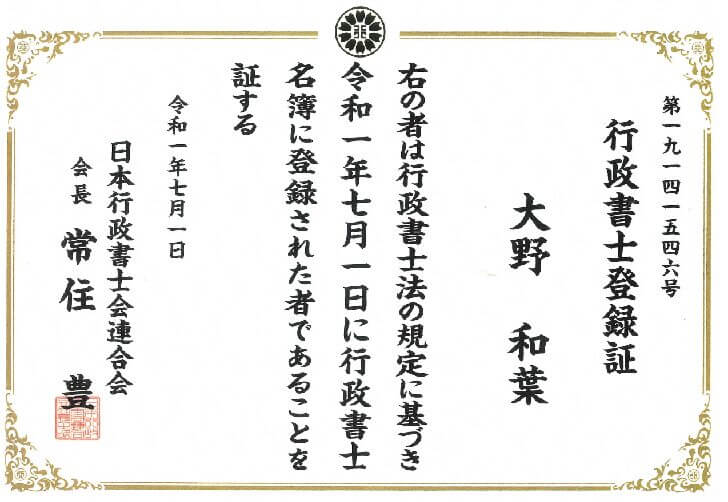 第一九一四一五四六号
行政書士登録証
大野 和葉
右の者は行政書士法の規定に基づき
令和一年七月一日に行政書士
名簿に登録された者であることを
証する
令和一年七月一日
日本行政書士会連合会
会長 常住 豊